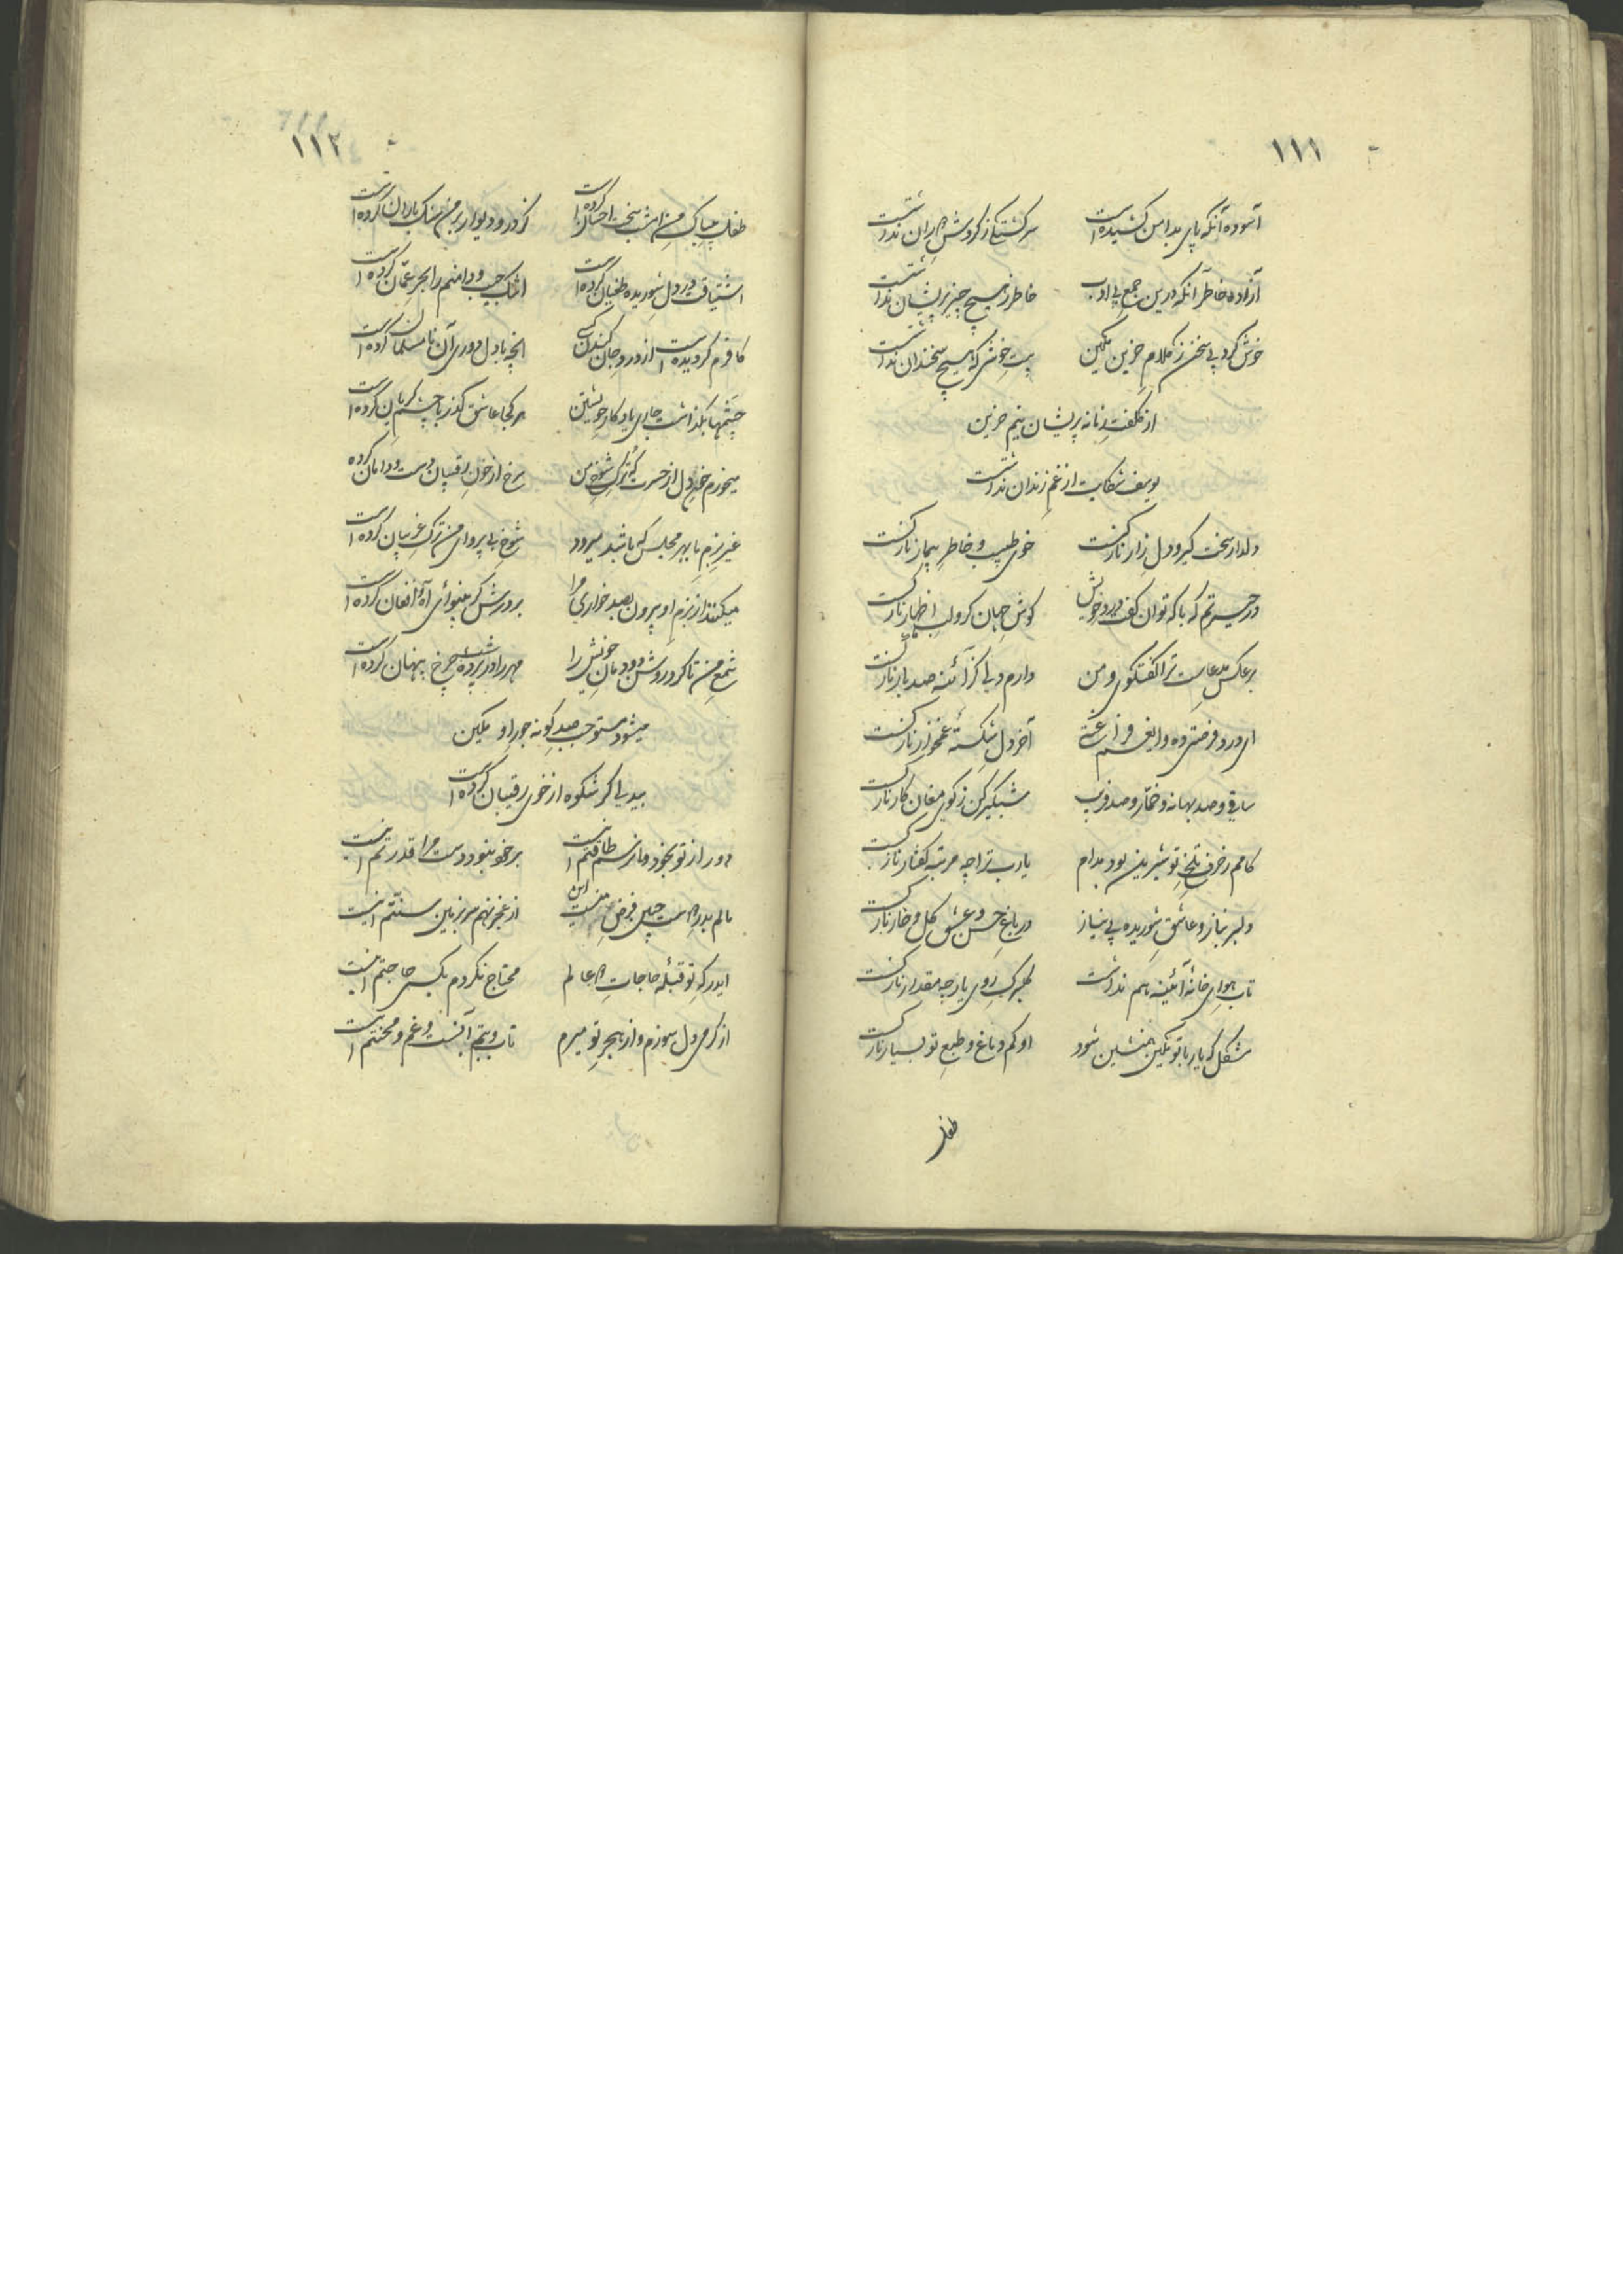 ۱۱۱
آسوده آنکه پای بدامن کشیده است سرگشتگی ز گردش دوران نداشت
آزاده خاطر آنکه درین جمع بی ادب خاطر ز هیچ چیز پریشان نداشت
خوش کرد بی سخن ز کلام حزین مکین بیت خوشی که هیچ سخندان نداشت
از کلفت زمانه پریشان نیم حزین
یوسف شکایت از غم زندان نداشت
دلدار سخت گیر و دل زار نازکست خوی طبیب و خاطر بیمار نازکست
در حیرتم که با که توان گفت درد خویش گوش جهان کر و لب اظهار نازکست
بر عکس مدعاست ترا گفتگوی و من دارم دلی کز آئینه صد بار نازکست
ای درد فرصتی ده و ای غم آخر دل شکستهٔ غمخوار نازکست
ساقی و صد بهانه و خمار و صد فریب شبگیر کن ز کوی مغان کار نازکست
کامم ز حرف تلخ تو شیرین بود مدام یارب ترا چه مرتبه گفتار نازکست
دلبر بناز و عاشق شوریده بی نیاز در باغ حسن و عشق گل و خار نازکست
تاب هوای خانهٔ آئینه هم نداشت گلبرگ روی یار چه مقدار نازکست
مشکل که یار با تو مکین همنشین شود او کم دماغ و طبع تو بسیار نازکست
طفل
۱۱۲
طفل بیباک من امشب سخت احسان کرده است کز در و دیوار بر من سنگ باران کرده است
اشتیاقت در دل شوریده طغیان کرده است اشک جیب و دامنم را بحر عمان کرده است
کافرم گردیده است از درد جان کندن کسی آنچه با دل دوری آن نامسلمان کرده است
چشمها بگذاشت جای یادگار خویشتن هر کجا عاشق گذر با چشم گریان کرده است
میخورم خون دل از حسرت که ترک شوخ من سرخ از خون رقیبان دست و دامان کرده
غیر بزم ما بهر مجلس که باشد میرود شوخ بی پروای من ترک غریبان کرده است
میکنند از بزم او بیرون بصد خواری مرا بر درش گر بینوائی آه و افغان کرده است
شمع من تا کرد روشن دودمان خویش را مهر را در پرده شب چرخ پنهان کرده است
میشود مستوجب صد گونه جور او مکین
بیدلی گر شکوه از خوی رقیبان کرده است
دور از تو بیخود و مانم طاقتم اینست بر خود نبود دست مرا قدرتم اینست
مالم بدرت جبین فرض منست این از عجز نهم سر بزمین سنتم اینست
ای درگه تو قبلهٔ حاجات دو عالم محتاج نکردم بکسی حاجتم اینست
از گرمی دل سوزم و از هجر تو میرم تاب و تبم آنست و غم و محنتم اینست